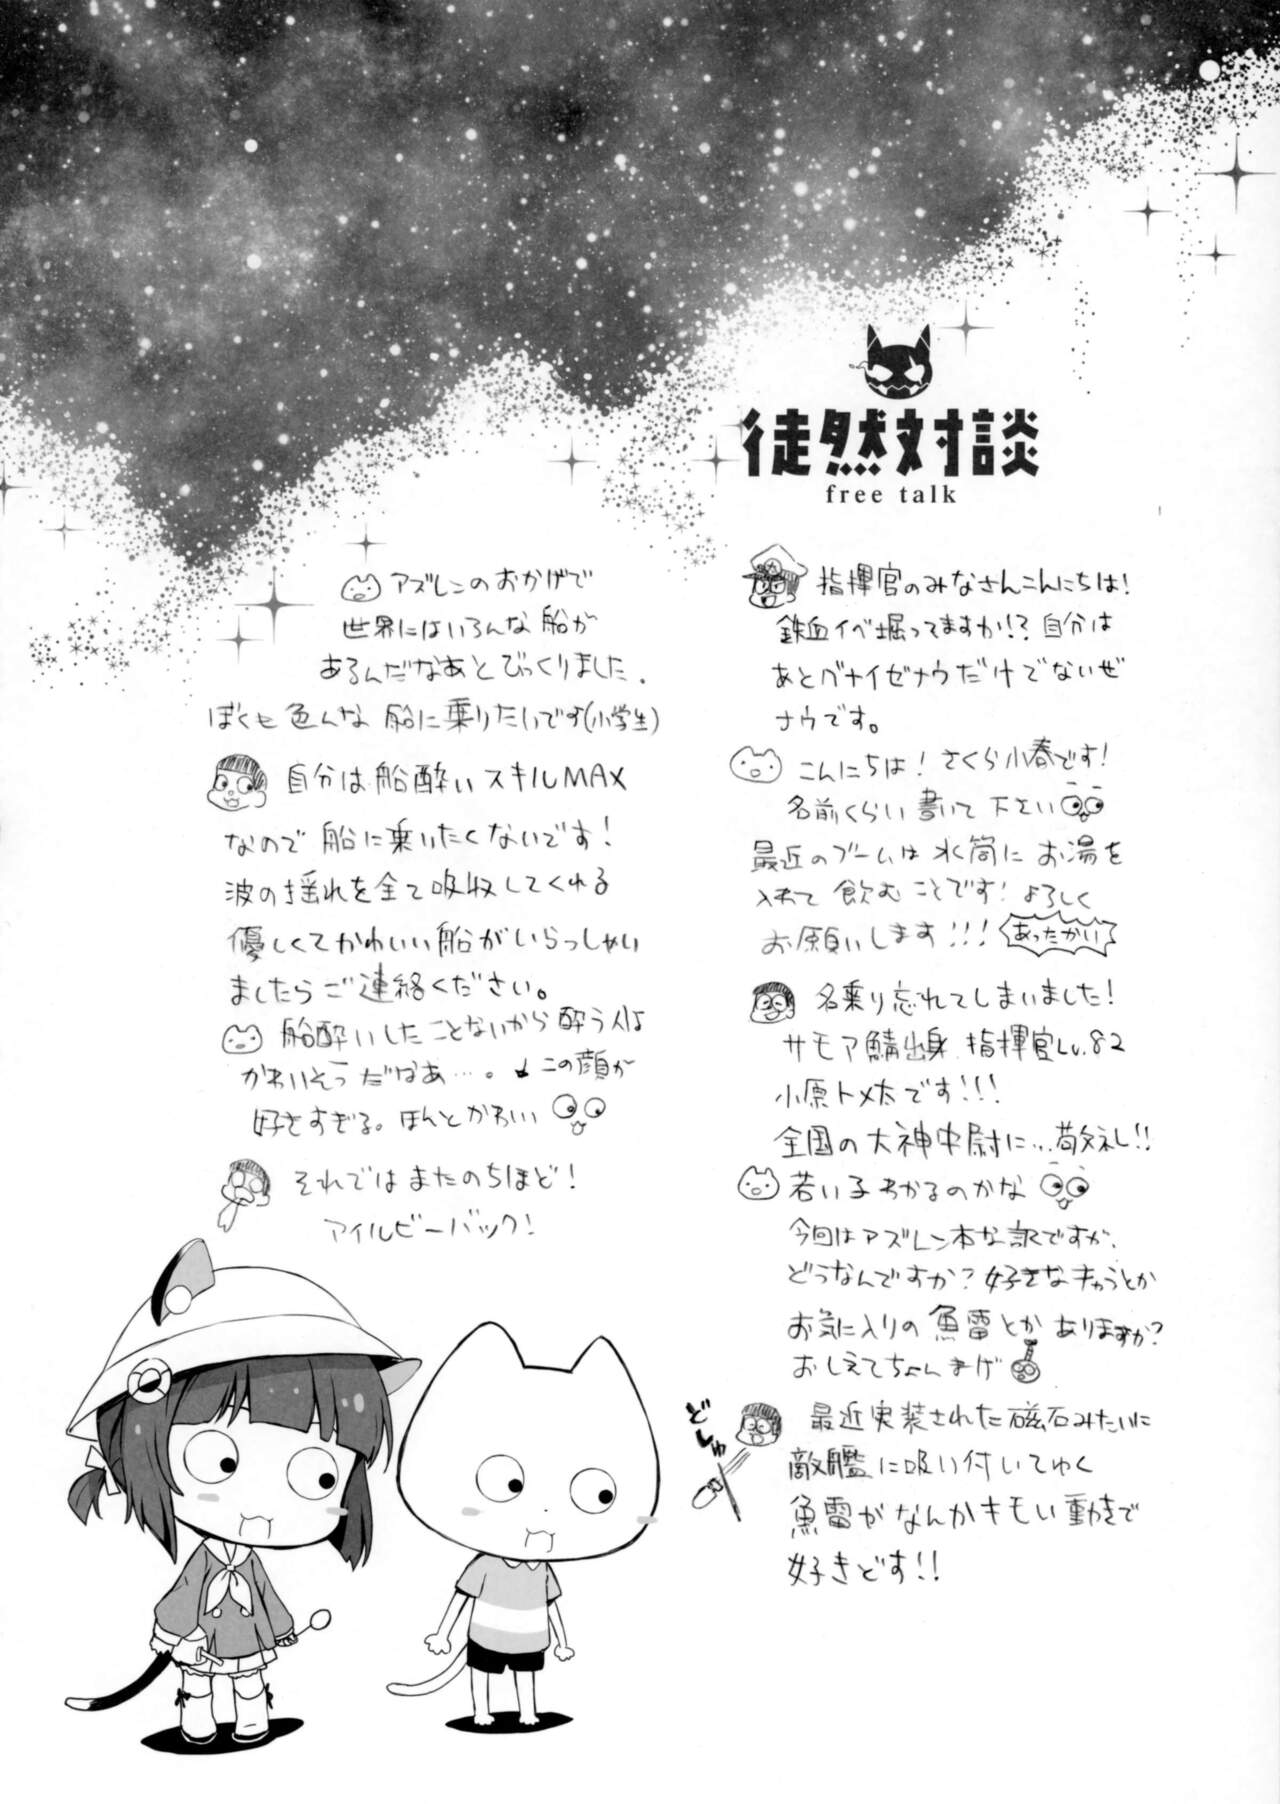 徒然対談
free talk
指揮官のみなさんこんにちは!
鉄血イベ堀ってますか!?自分は
あとグナイゼナウだけでないぜ
ナウです。
こんにちは!さくら小春です!
名前くらい書いて下さい
最近のブームは水筒にお湯を
入れて飲むことです!よろしく
お願いします!!!
あったかい
名乗り忘れてしまいました!
サモア鯖出身 指揮官Lv.82
小原トメ太です!!!
全国の大神中尉に…敬礼!!
若い子わかるのかな
今回はアズレン本な訳ですが、
どうなんですか?好きなキャラとか
お気に入りの魚雷とかありますか?
おしえてちょんまげ
どしゅ
最近実装された磁石みたいに
敵艦に吸い付いてゆく
魚雷がなんかキモい動きで
好きどす!!
アズレンのおかげで
世界にはいろんな船が
あるんだなあとびっくりました.
ぼくも色んな船に乗りたいです(小学生)
自分は船酔いスキルMAX
なので船に乗りたくないです!
波の揺れを全て吸収してくれる
優しくてかわいい船がいらっしゃい
ましたらご連絡ください。
船酔いしたことないから酔う人は
かわいそうだなあ…。この顔が
好きすぎる。ほんとかわいい
それではまたのちほど!
アイルビーバック!